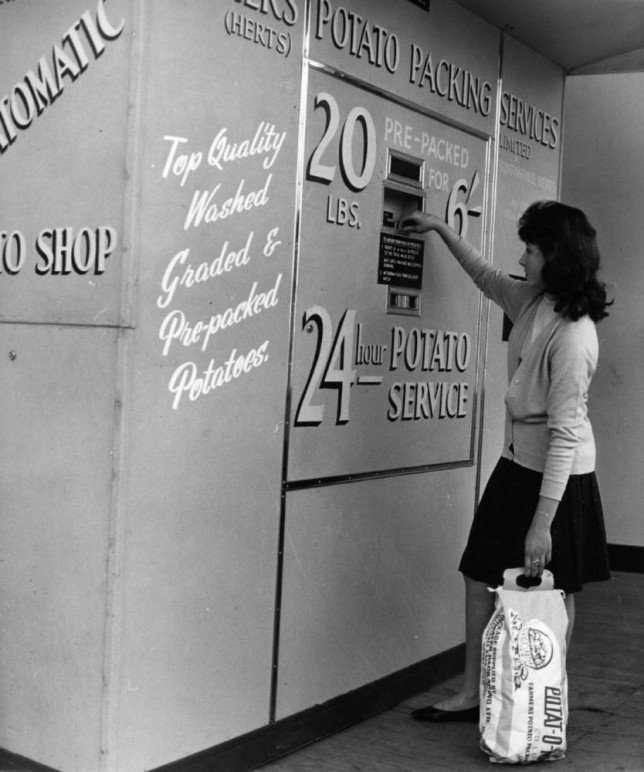 TOMATIC
TO SHOP
ERS
(HERTS)
Top Quality
Washed
Graded &
Pre-packed
Potatoes.
POTATO PACKING SERVICES
LIMITED
20
LBS.
PRE-PACKED
FOR
6'-
24 hour POTATO
SERVICE
POTAT-O-
FARMERS POTATO